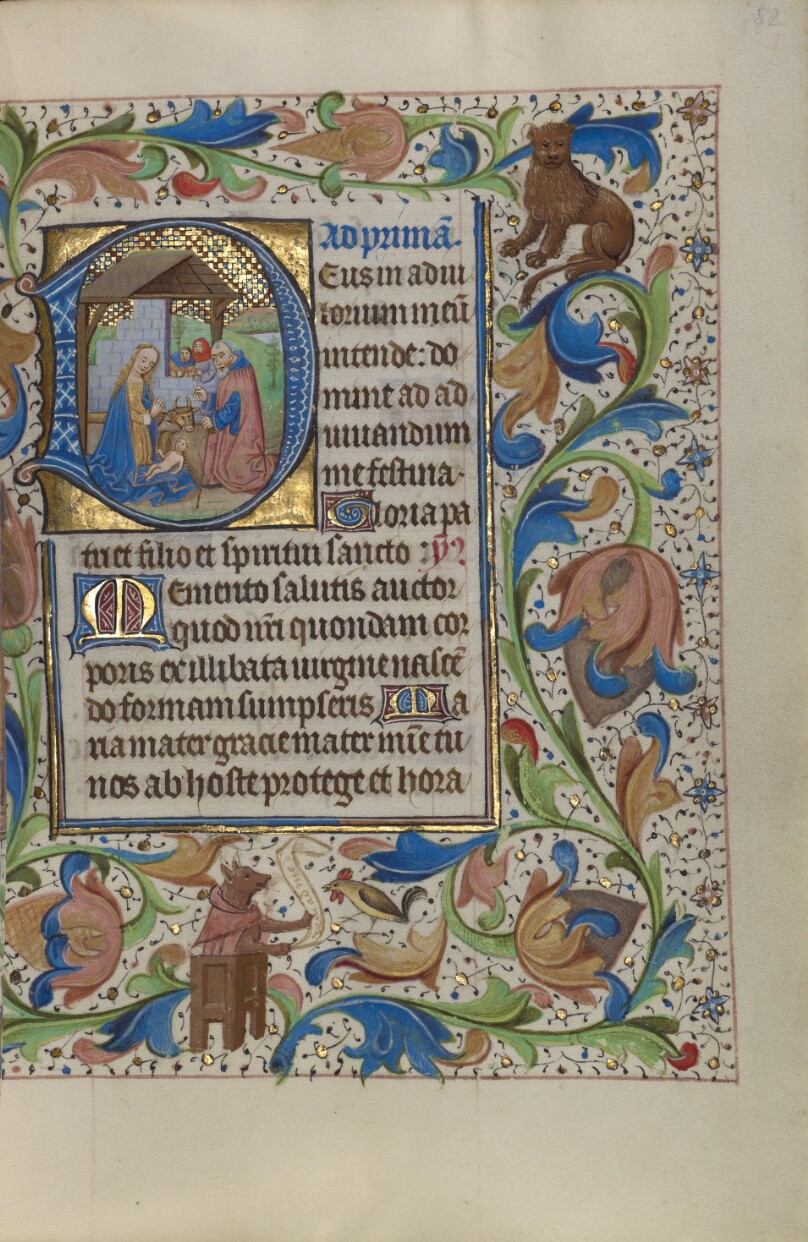 82
Ad primā.
Deus in adiu
torium meū
intende: do
mine ad ad
iuuandum
me festina.
Gloria pa
tri et filio et spiritui sancto :
Memento salutis auctor
quod nr̄i quondam cor
poris ex illibata uirgine nascē
do formam sumpseris Ma
ria mater gracie mater mīe tu
nos ab hoste protege et hora